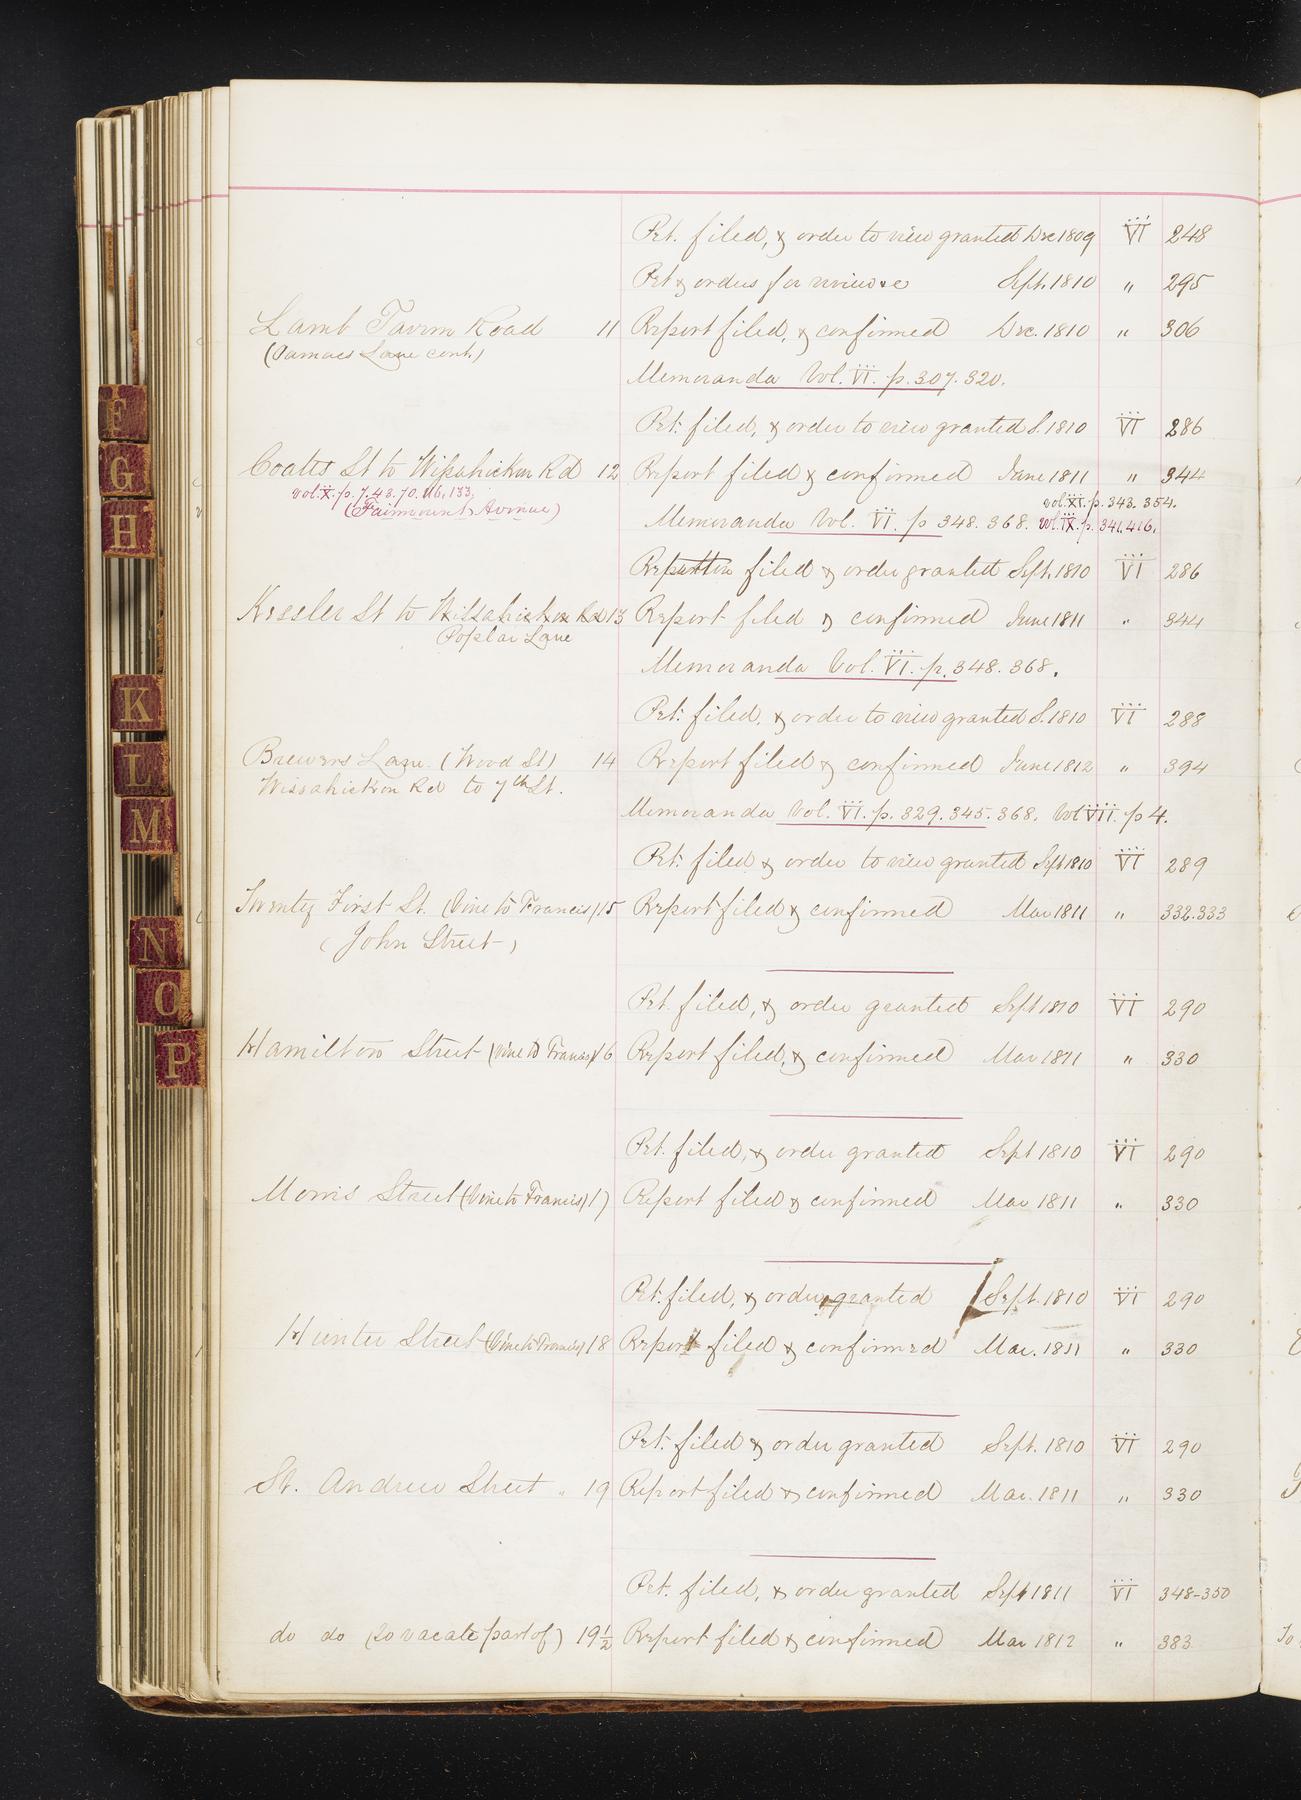 Pet. filed, & order to view granted Dec 1809 VI 248
Pet & orders for review Sept. 1810 " 295
Lamb Tavern Road 11 Report filed, & confirmed Dec. 1810 " 306
(Lane cont.)
Memoranda Vol. VI. p. 307. 320.
Pet. filed, & order to view granted S. 1810 VI 286
Coates St to Wissahickon Rd 12 Report filed & confirmed June 1811 " 344
vol. X. p. 7. 43. 70. 116. 133. vol. XI. p. 343. 354.
(Fairmount Avenue)
Memoranda Vol. VI. p 348. 368. vol. IX. p. 341. 416.
filed & order granted Sept. 1810 VI 286
Kessler St to Wissahickon Rd 13 Report filed & confirmed June 1811 " 344
Poplar Lane
Memoranda Vol. VI. p. 348. 368.
Pet. filed, & order to view granted S. 1810 VI 288
Brewers Lane (Wood St) 14 Report filed & confirmed June 1812 " 394
Wissahickon Rd to 7th St.
Memoranda Vol. VI. p. 329. 345. 368. Vol VII. p 4.
Pet. filed & order to view granted Sept 1810 VI 289
Twenty First St. (Vine to Francis) 15 Report filed & confirmed Mar 1811 " 332.333
(John Street)
Pet. filed, & order granted Sept 1810 VI 290
Hamilton Street (Vine to Francis) 16 Report filed, & confirmed Mar 1811 " 330
Pet. filed, & order granted Sept 1810 VI 290
Morris Street (Vine to Francis) 17 Report filed & confirmed Mar 1811 " 330
Pet. filed, & order granted Sept. 1810 VI 290
Hunter Street (Vine to Francis) 18 Report filed & confirmed Mar. 1811 " 330
Pet. filed & order granted Sept. 1810 VI 290
St. Andrew Street " 19 Report filed & confirmed Mar. 1811 " 330
Pet. filed, & order granted Sept 1811 VI 348-350
do do (to vacate part of) 19½ Report filed & confirmed Mar 1812 " 383
F
G
H
K
L
M
N
O
P